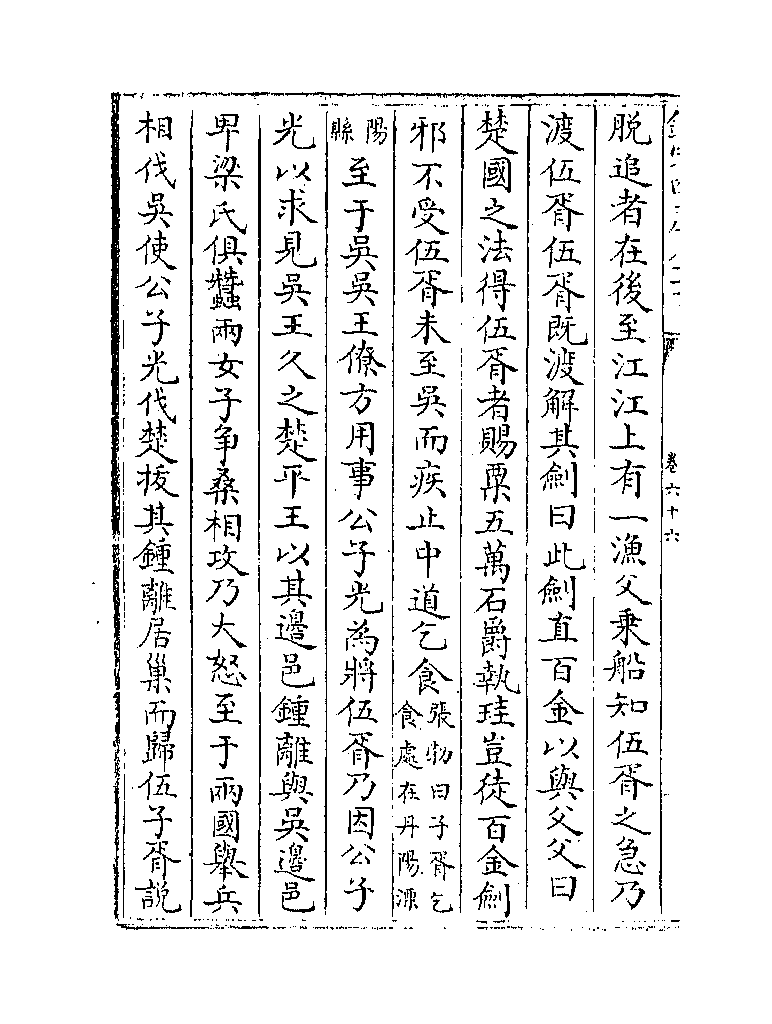 卷六十六
脱追者在後至江江上有一漁父乗船知伍胥之急乃
渡伍胥伍胥既渡解其劍曰此劍直百金以與父父曰
楚國之法得伍胥者賜粟五萬石爵執珪豈徒百金劍
邪不受伍胥未至吳而疾止中道乞食張勃曰子胥乞食處在丹陽溧
陽縣至于吳吳王僚方用事公子光為將伍胥乃因公子
光以求見吳王久之楚平王以其邊邑鍾離與吳邊邑
卑梁氏俱蠶兩女子爭桑相攻乃大怒至于兩國舉兵
相伐吳使公子光伐楚拔其鍾離居巢而歸伍子胥説